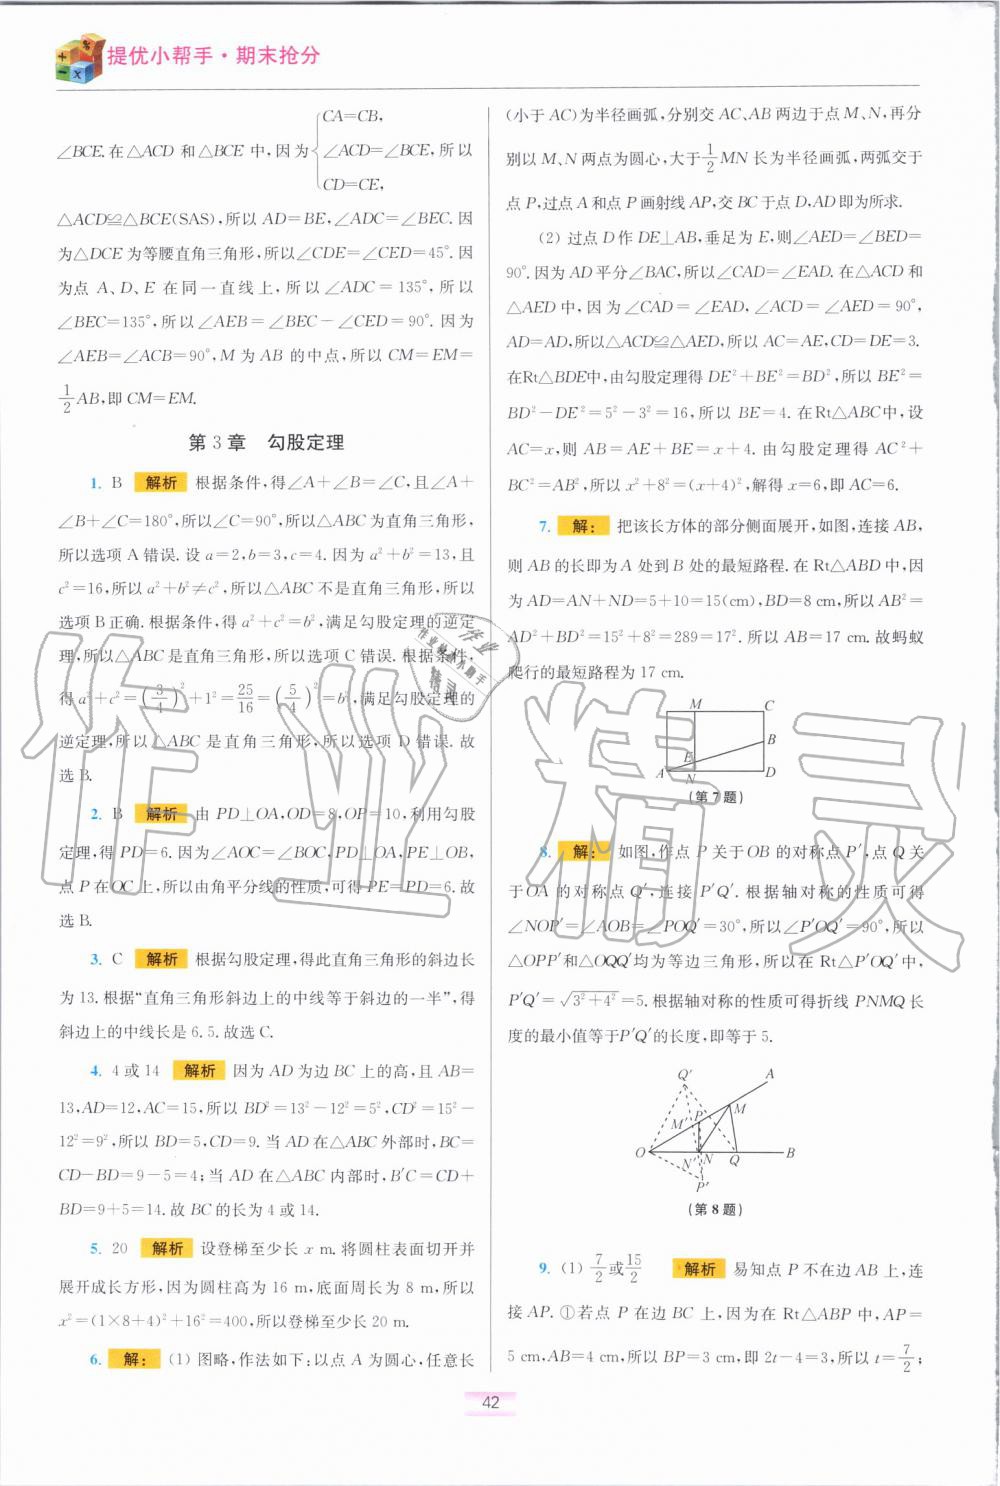 提优小帮手·期末抢分
CA=CB,
∠BCE.在△ACD 和△BCE 中,因为{∠ACD=∠BCE,所以
CD=CE,
△ACD≌△BCE(SAS),所以 AD=BE,∠ADC=∠BEC.因
为△DCE 为等腰直角三角形,所以∠CDE=∠CED=45°.因
为点 A、D、E 在同一直线上,所以∠ADC=135°,所以
∠BEC=135°,所以∠AEB=∠BEC-∠CED=90°.因为
∠AEB=∠ACB=90°,M 为 AB 的中点,所以 CM=EM=
1/2 AB,即 CM=EM.
第 3 章 勾股定理
1. B 解析 根据条件,得∠A+∠B=∠C,且∠A+
∠B+∠C=180°,所以∠C=90°,所以△ABC 为直角三角形,
所以选项 A 错误.设 a=2,b=3,c=4.因为 a²+b²=13,且
c²=16,所以 a²+b²≠c²,所以△ABC 不是直角三角形,所以
选项 B 正确.根据条件,得 a²+c²=b²,满足勾股定理的逆定
理,所以△ABC 是直角三角形,所以选项 C 错误.根据条件,
得 a²+c²=(3/4)²+1²=25/16=(5/4)²=b²,满足勾股定理的
逆定理,所以△ABC 是直角三角形,所以选项 D 错误.故
选 B.
2. B 解析 由 PD⊥OA,OD=8,OP=10,利用勾股
定理,得 PD=6.因为∠AOC=∠BOC,PD⊥OA,PE⊥OB,
点 P 在 OC 上,所以由角平分线的性质,可得 PE=PD=6.故
选 B.
3. C 解析 根据勾股定理,得此直角三角形的斜边长
为 13.根据“直角三角形斜边上的中线等于斜边的一半”,得
斜边上的中线长是 6.5.故选 C.
4. 4 或 14 解析 因为 AD 为边 BC 上的高,且 AB=
13,AD=12,AC=15,所以 BD²=13²-12²=5²,CD²=15²-
12²=9²,所以 BD=5,CD=9.当 AD 在△ABC 外部时,BC=
CD-BD=9-5=4;当 AD 在△ABC 内部时,B′C=CD+
BD=9+5=14.故 BC 的长为 4 或 14.
5. 20 解析 设登梯至少长 x m.将圆柱表面切开并
展开成长方形,因为圆柱高为 16 m,底面周长为 8 m,所以
x²=(1×8+4)²+16²=400,所以登梯至少长 20 m.
6. 解: (1) 图略,作法如下:以点 A 为圆心,任意长
(小于 AC)为半径画弧,分别交 AC、AB 两边于点 M、N,再分
别以 M、N 两点为圆心,大于 1/2 MN 长为半径画弧,两弧交于
点 P,过点 A 和点 P 画射线 AP,交 BC 于点 D,AD 即为所求.
(2) 过点 D 作 DE⊥AB,垂足为 E,则∠AED=∠BED=
90°.因为 AD 平分∠BAC,所以∠CAD=∠EAD.在△ACD 和
△AED 中,因为∠CAD=∠EAD,∠ACD=∠AED=90°,
AD=AD,所以△ACD≌△AED,所以 AC=AE,CD=DE=3.
在Rt△BDE中,由勾股定理得 DE²+BE²=BD²,所以 BE²=
BD²-DE²=5²-3²=16,所以 BE=4.在 Rt△ABC中,设
AC=x,则 AB=AE+BE=x+4.由勾股定理得 AC²+
BC²=AB²,所以 x²+8²=(x+4)²,解得 x=6,即 AC=6.
7. 解: 把该长方体的部分侧面展开,如图,连接 AB,
则 AB 的长即为 A 处到 B 处的最短路程.在 Rt△ABD 中,因
为 AD=AN+ND=5+10=15(cm),BD=8 cm,所以 AB²=
AD²+BD²=15²+8²=289=17².所以 AB=17 cm.故蚂蚁
爬行的最短路程为 17 cm.
M C
B
E
A N D
(第 7 题)
8. 解: 如图,作点 P 关于 OB 的对称点 P′,点 Q 关
于 OA 的对称点 Q′,连接 P′Q′.根据轴对称的性质可得
∠NOP′=∠AOB=∠POQ′=30°,所以∠P′OQ′=90°,所以
△OPP′和△OQQ′均为等边三角形,所以在 Rt△P′OQ′中,
P′Q′=√3²+4²=5.根据轴对称的性质可得折线 PNMQ 长
度的最小值等于P′Q′的长度,即等于 5.
Q′ A
M′ P M
O N′ N Q B
P′
(第 8 题)
9. (1) 7/2或15/2 解析 易知点 P 不在边 AB 上,连
接 AP.①若点 P 在边 BC 上,因为在 Rt△ABP 中,AP=
5 cm,AB=4 cm,所以 BP=3 cm,即 2t-4=3,所以 t=7/2;
42
作业精灵
作业
作业检查小助手
精灵